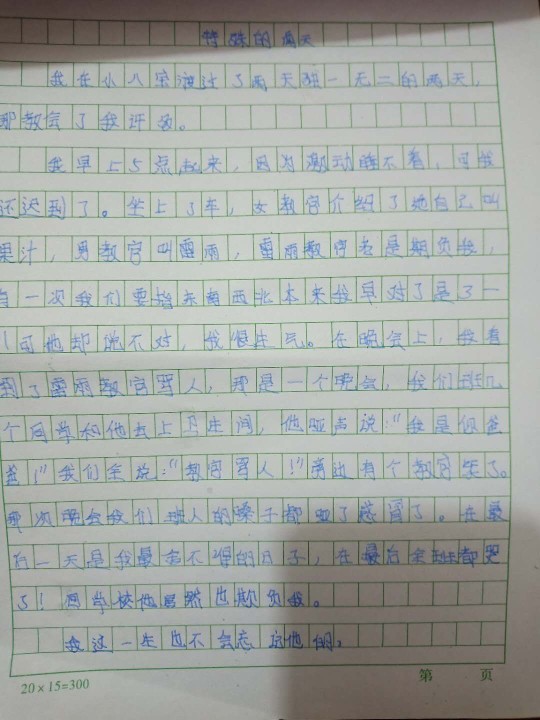 特殊的两天
我在小八宝渡过了两天独一无二的两天,
那教会了我许多。
我早上5点起来,因为激动睡不着,可我
还迟到了。坐上了车,女教官介绍了她自己叫
果汁,男教官叫雷雨,雷雨教官老是期负我,
有一次我们要指东南西北本来我早对了是了一
可他却说不对,我很生气。在晚会上,我看
到了雷雨教官骂人,那是一个晚会,我们班几
个同学和他去上卫生间,他哑声说:"我是你爸
爸!"我们全说:"教官骂人!"旁边有个教官笑了。
那次晚会我们班人的嗓子都哑了感冒了。在最
后一天是我最舍不得的日子,在最后全班都哭
了!回学校他虽然也欺负我。
我这一生也不会忘记他的。
20×15=300
第 页